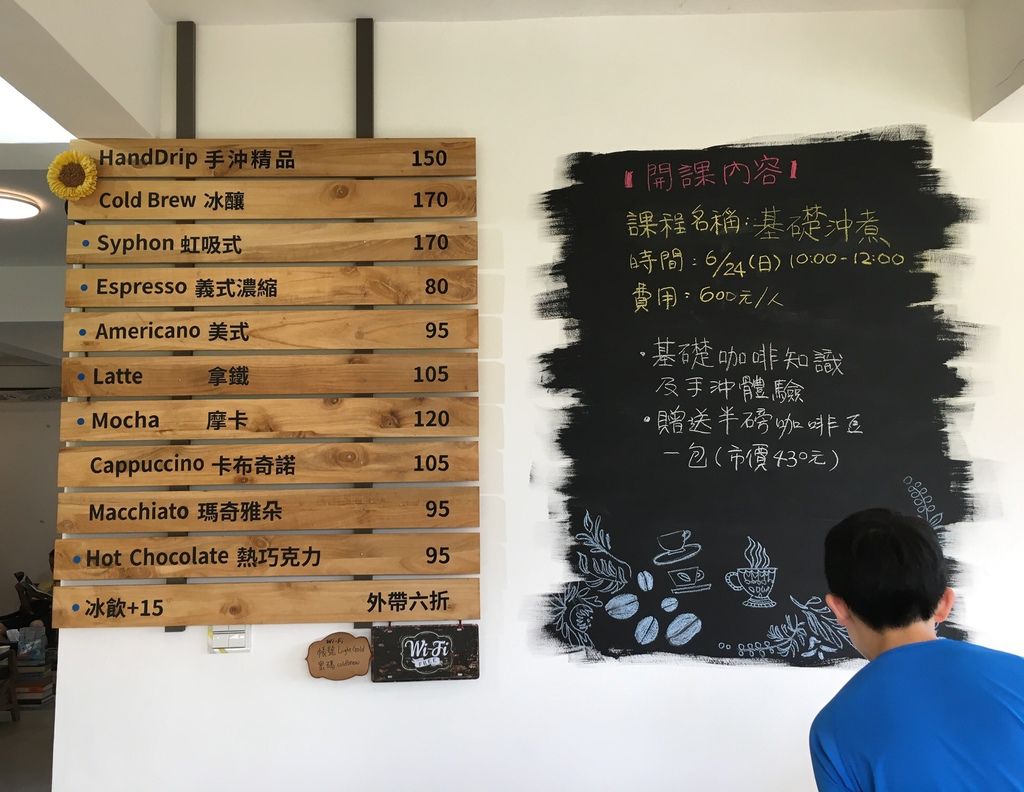 HandDrip 手沖精品 150
Cold Brew 冰釀 170
Syphon 虹吸式 170
Espresso 義式濃縮 80
Americano 美式 95
Latte 拿鐵 105
Mocha 摩卡 120
Cappuccino 卡布奇諾 105
Macchiato 瑪奇雅朵 95
Hot Chocolate 熱巧克力 95
冰飲+15 外帶六折
Wi-Fi
帳號 Light Gold
密碼 coldbrew
Wi-Fi
FREE
【開課內容】
課程名稱:基礎沖煮
時間:6/24(日)10:00-12:00
費用:600元/人
·基礎咖啡知識
及手沖體驗
·贈送半磅咖啡豆
一包(市價430元)